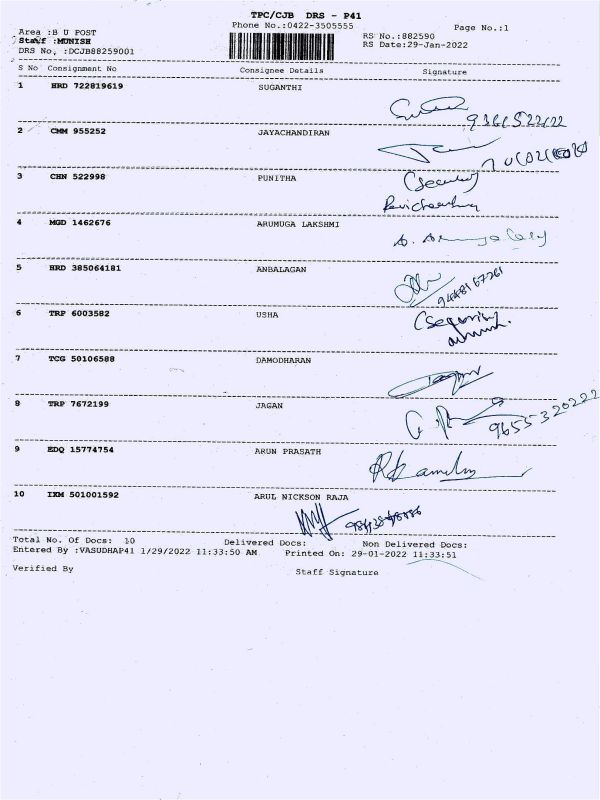 TPC/CJB DRS - P41
Phone No.:0422-3505555
Page No.:1
Area :B U POST
RS No.:882590
Staff :MUNISH
RS Date:29-Jan-2022
DRS No. :DCJB88259001
S No Consignment No Consignee Details Signature
1 HRD 722819619 SUGANTHI
2 CMM 955252 JAYACHANDIRAN
3 CHN 522998 PUNITHA
4 MGD 1462676 ARUMUGA LAKSHMI
5 HRD 385064181 ANBALAGAN
6 TRP 6003582 USHA
7 TCG 50106588 DAMODHARAN
8 TRP 7672199 JAGAN
9655320222
9 EDQ 15774754 ARUN PRASATH
10 IXM 501001592 ARUL NICKSON RAJA
Total No. Of Docs: 10 Delivered Docs: Non Delivered Docs:
Entered By :VASUDHAP41 1/29/2022 11:33:50 AM Printed On: 29-01-2022 11:33:51
Verified By Staff Signature